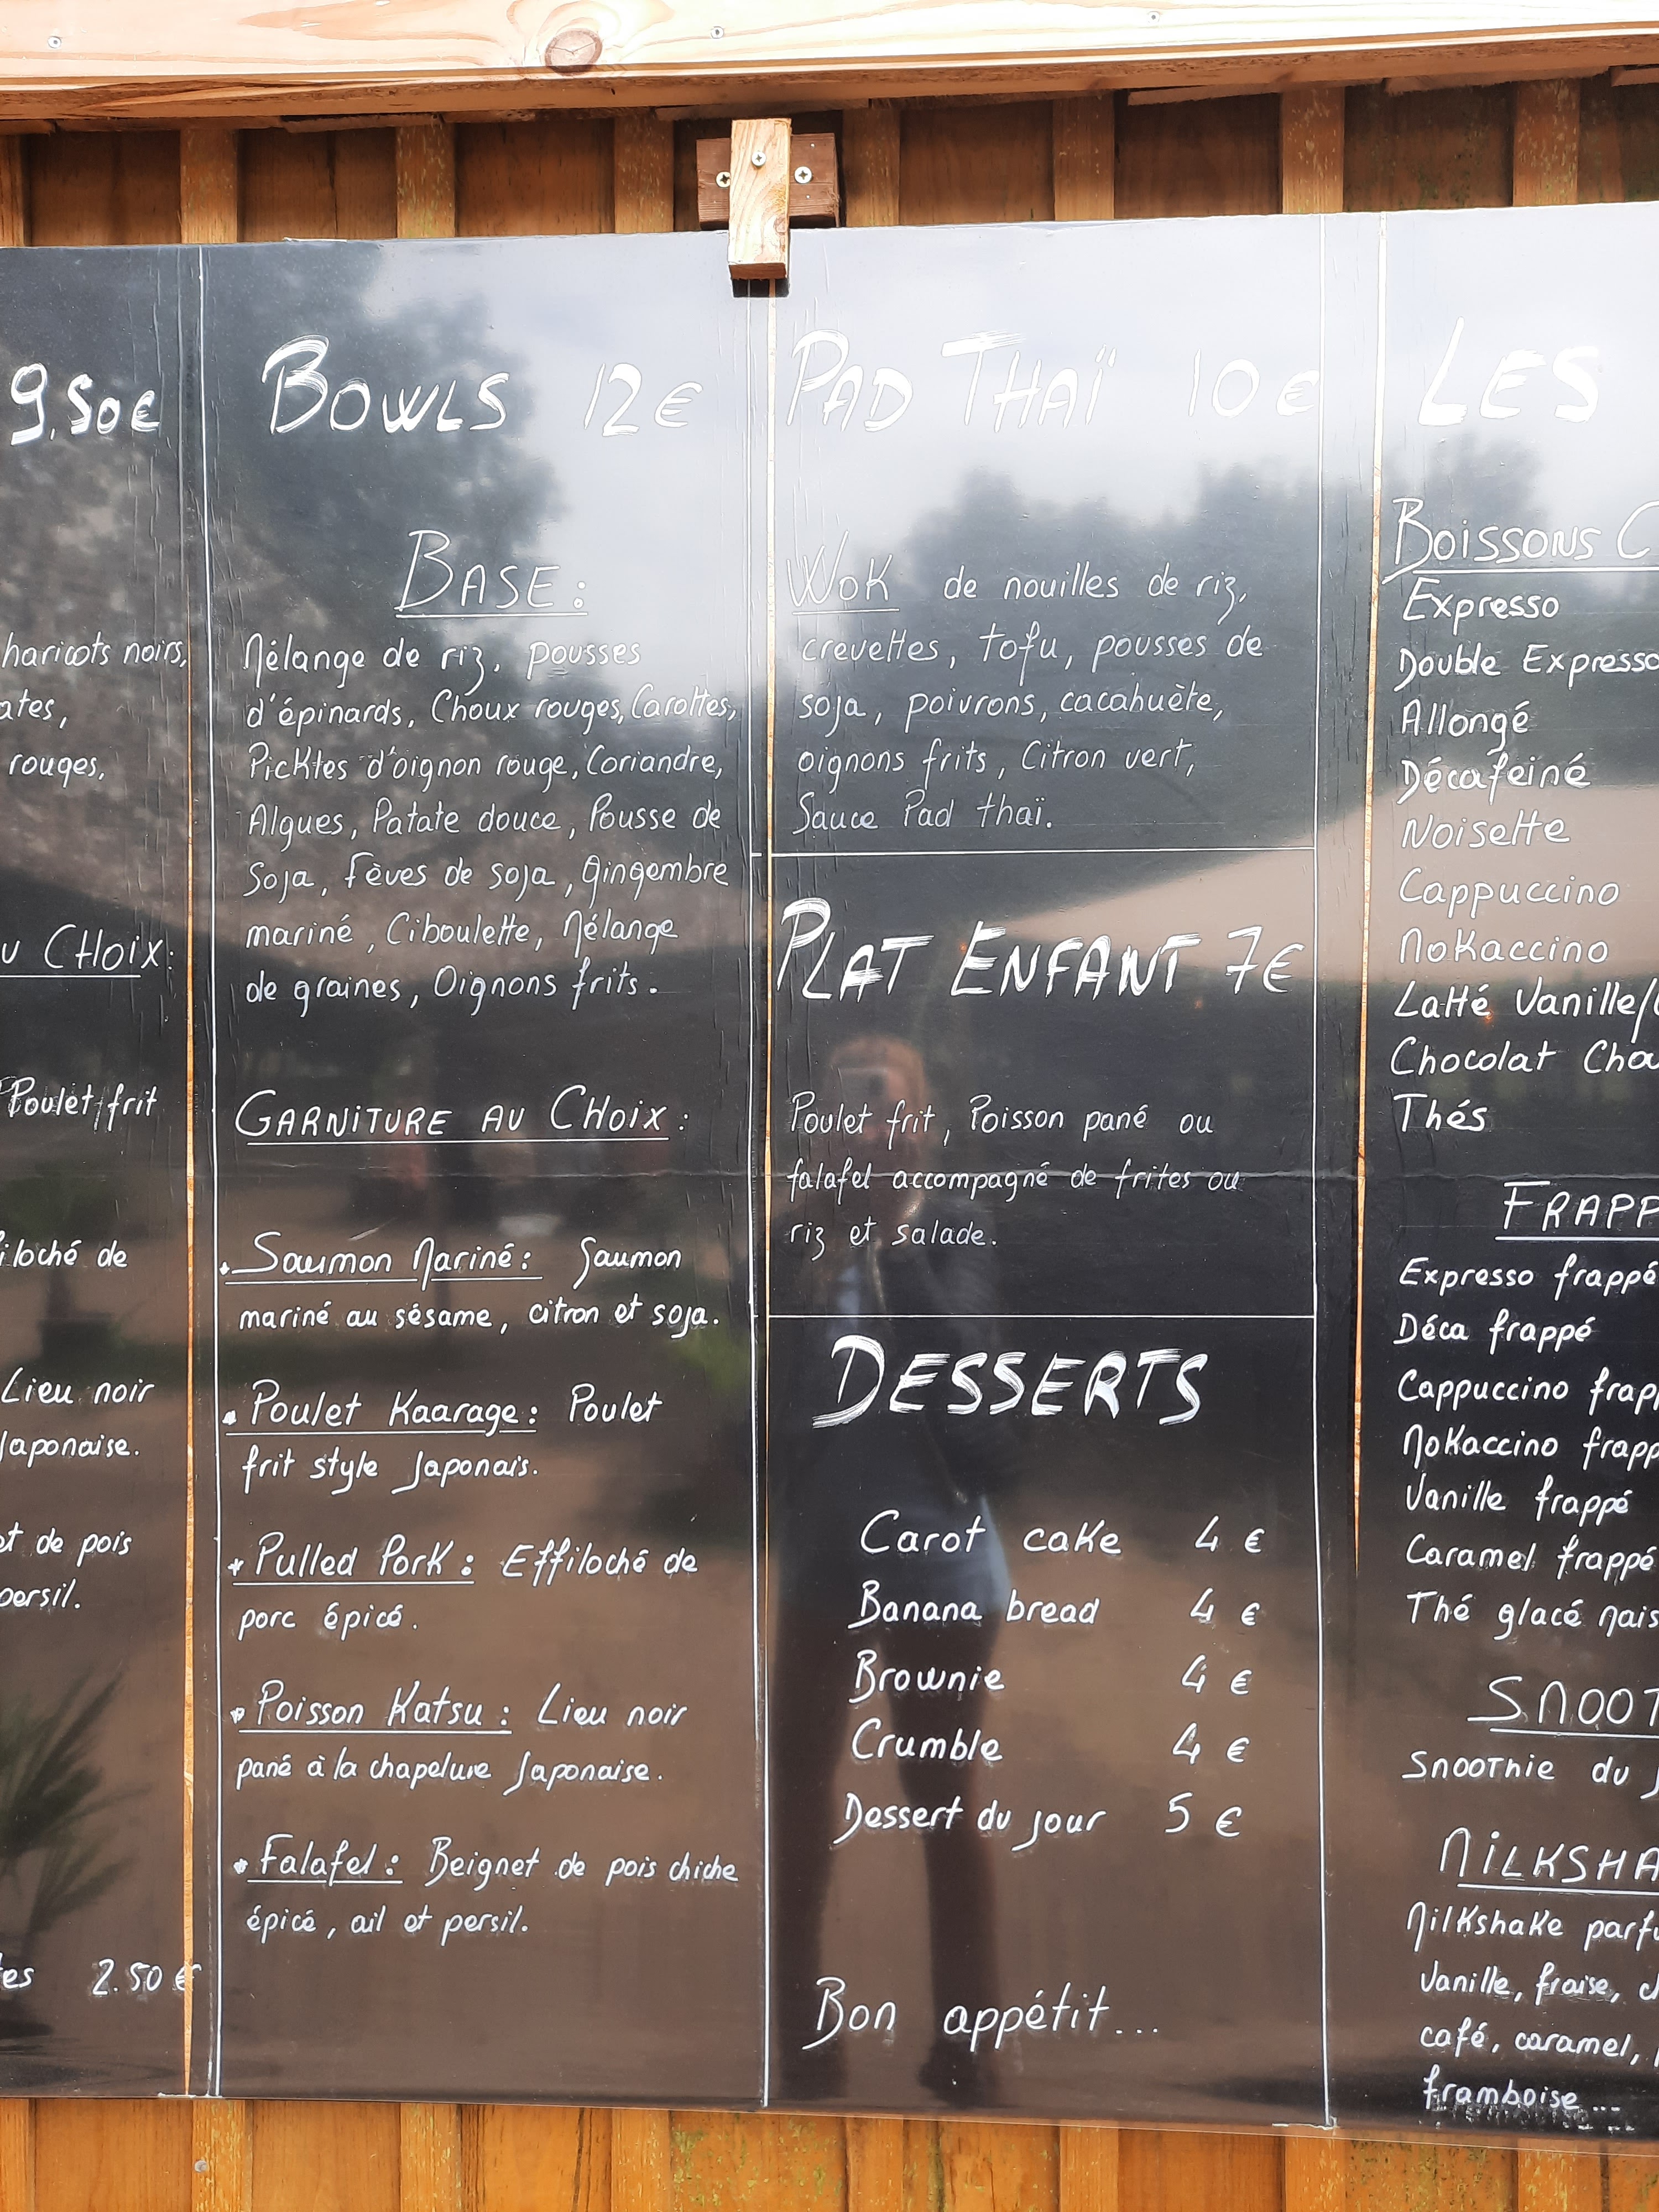 9,50€
haricots noirs,
rouges,
CHOIX:
Poulet frit
de
Lieu noir
Japonaise.
de pois
persil.
2.50 €
BOWLS 12€
BASE:
Mélange de riz, pousses
d'épinards, Choux rouges, Carottes,
Picktes d'oignon rouge, Coriandre,
Algues, Patate douce, Pousse de
Soja, Fèves de soja, gingembre
mariné, Ciboulette, Mélange
de graines, Oignons frits.
GARNITURE AU CHOIX:
Saumon Mariné: Saumon
mariné au sésame, citron et soja.
Poulet Kaarage: Poulet
frit style Japonais.
Pulled Pork: Effiloché de
porc épicé.
Poisson Katsu: Lieu noir
pané à la chapelure Japonaise.
Falafel: Beignet de pois chiche
épicé, ail et persil.
PAD THAÏ 10€
WOK de nouilles de riz,
crevettes, tofu, pousses de
soja, poivrons, cacahuète,
oignons frits, Citron vert,
Sauce Pad thaï.
PLAT ENFANT 7€
Poulet frit, Poisson pané ou
falafel accompagné de frites ou
riz et salade.
DESSERTS
Carot cake 4 €
Banana bread 4 €
Brownie 4 €
Crumble 4 €
Dessert du jour 5 €
Bon appétit...
LES
BOISSONS C
Expresso
Double Expresso
Allongé
Décafeiné
Noisette
Cappuccino
Mokaccino
Latté Vanille/
Chocolat Cho
Thés
FRAPP
Expresso frappé
Déca frappé
Cappuccino frapp
Mokaccino frapp
Vanille frappé
Caramel frappé
Thé glacé Mais
SMOOT
Smoothie du
MILKSHA
Milkshake parfu
Vanille, fraise,
café, caramel,
framboise...